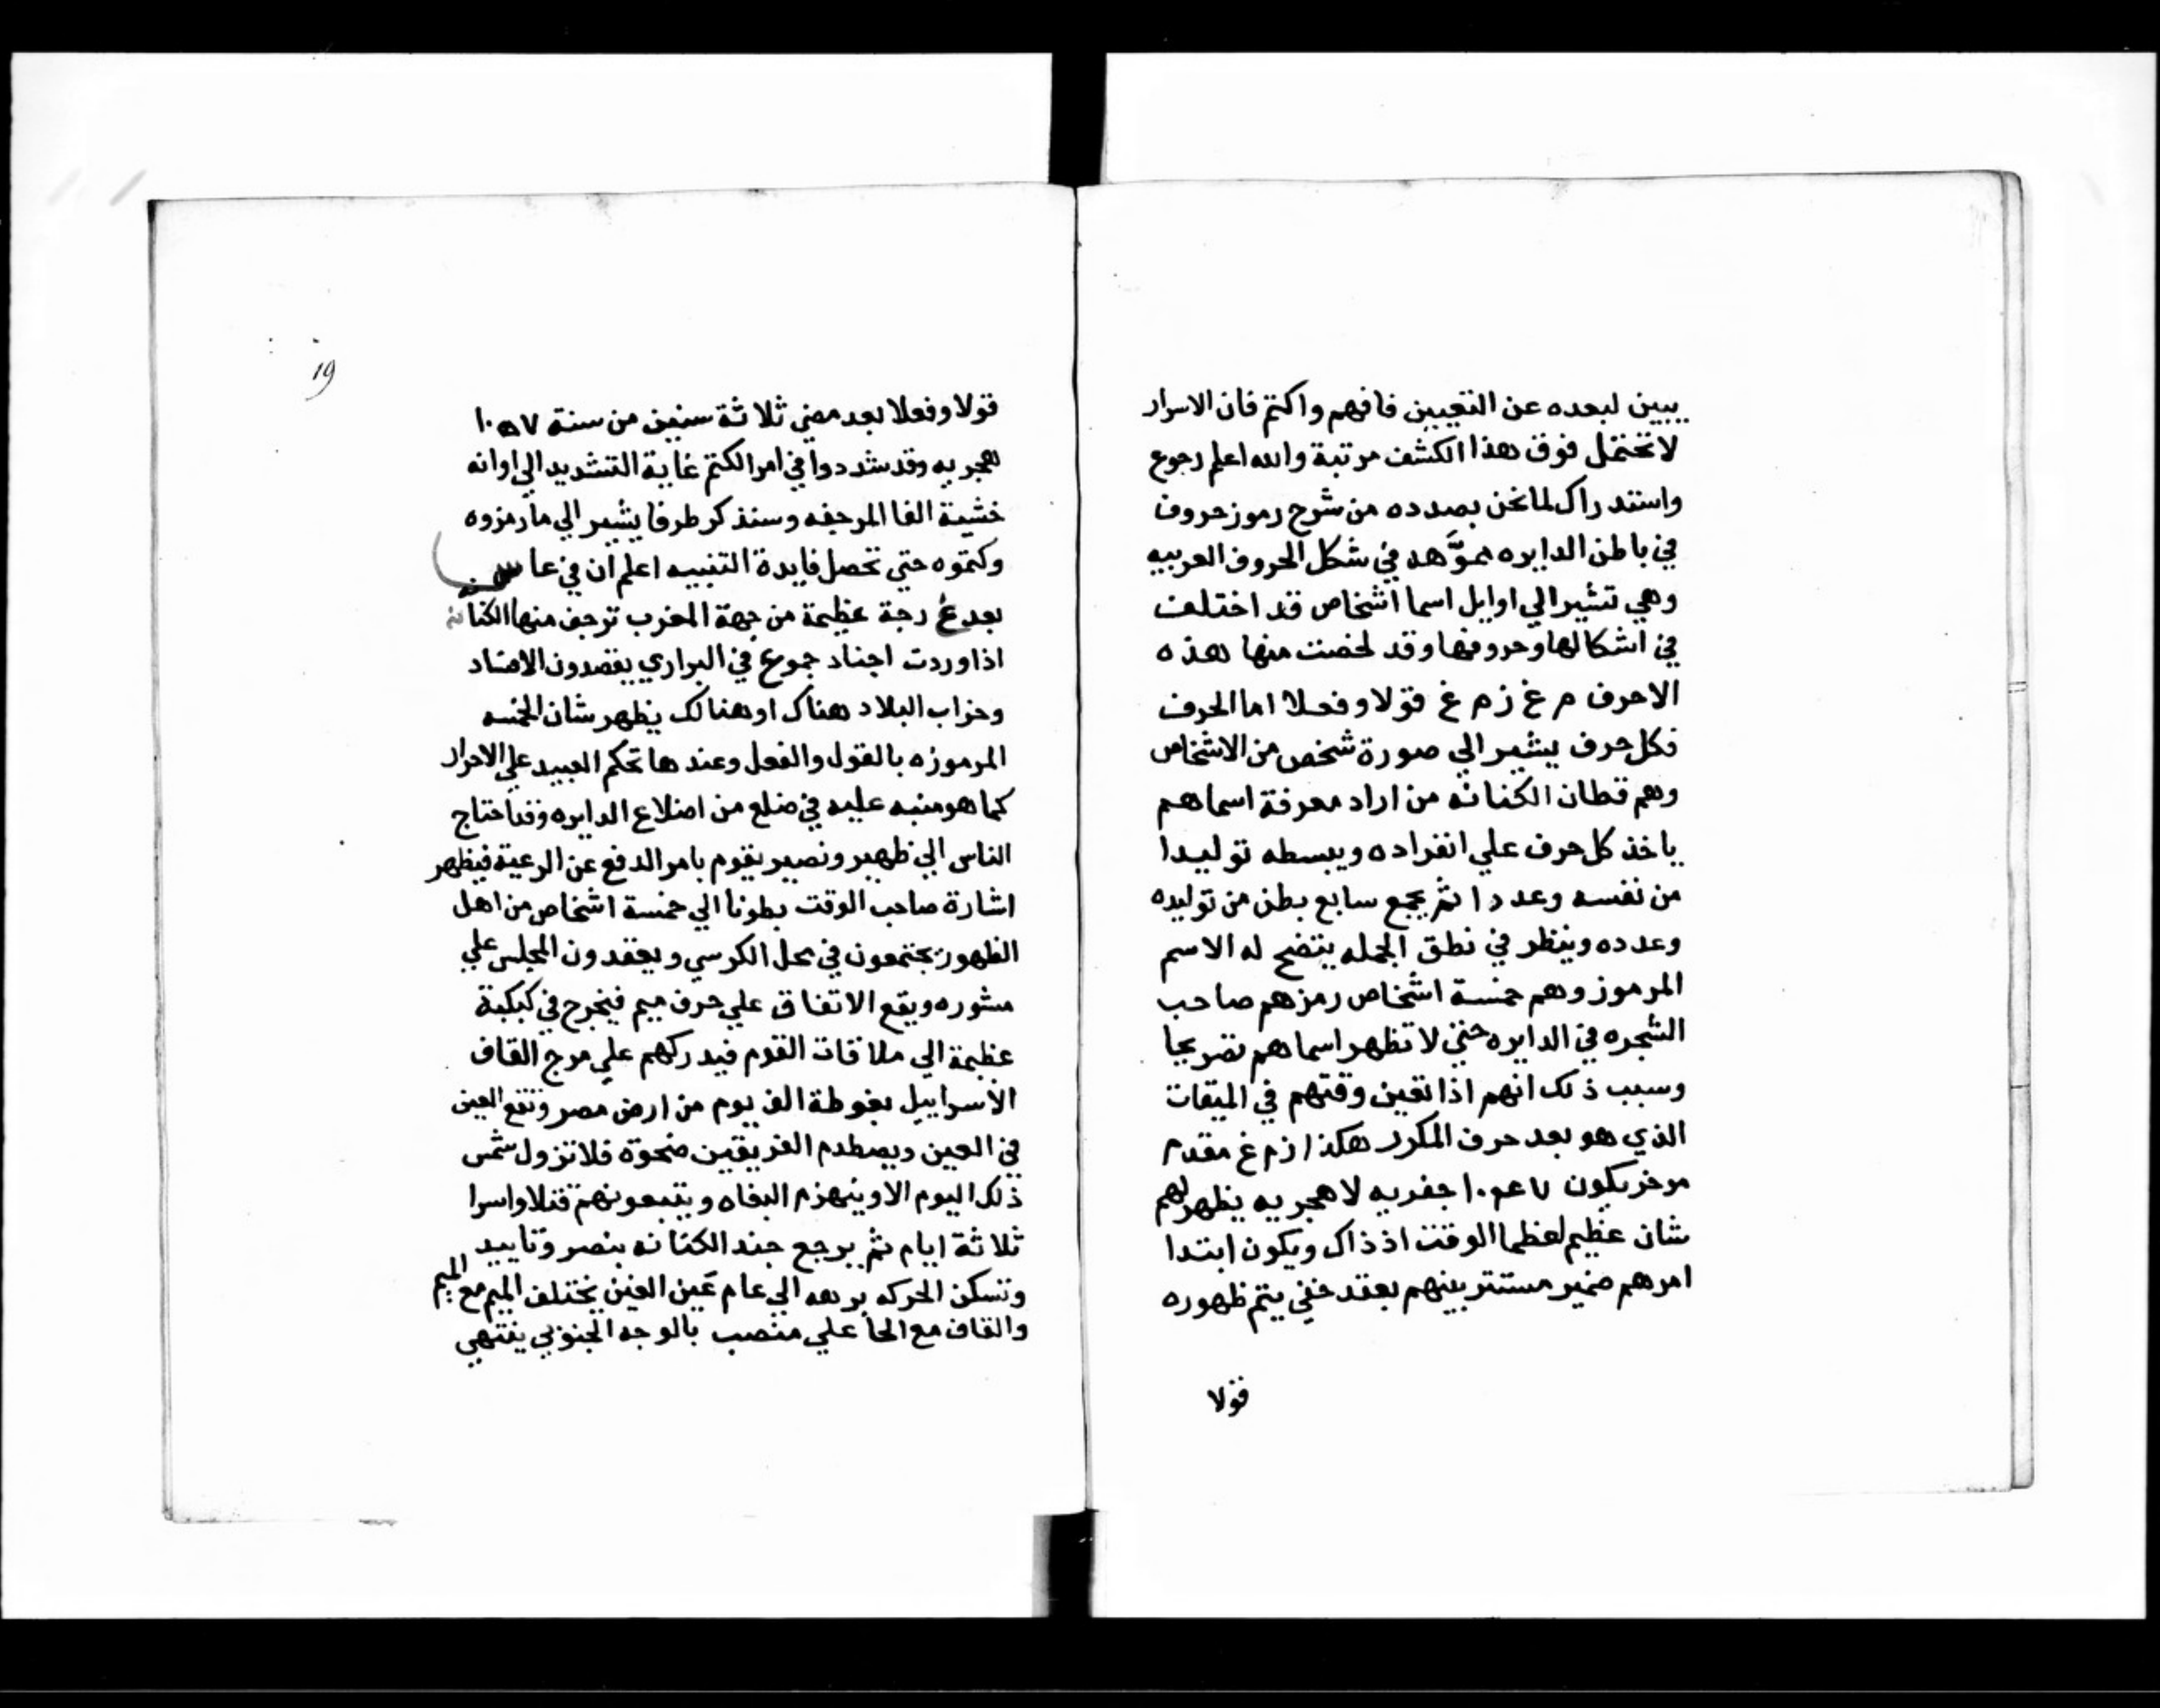 يبين لبعده عن التعيين فافهم واكتم فان الاسرار
لا تحتمل فوق هذا الكشف مرتبة والله اعلم رجوع
واستدراك لما نحن بصدده من شرح رموز حروف
في باطن الدايره مموَّهه في شكل الحروف العربيه
وهي تشير الي اوايل اسما اشخاص قد اختلفت
في اشكالها وحروفها وقد لخصت منها هذه
الاحرف م غ ز م غ قولا وفعلا اما الحرف
فكل حرف يشير الي صورة شخص من الاشخاص
وهم قطان الكنانه من اراد معرفة اسماهم
ياخذ كل حرف علي انفراده ويبسطه توليدا
من نفسه وعددا ثم يجمع سابع بطن من توليده
وعدده وينظر في نطق الجمله يتضح له الاسم
المرموز وهم خمسة اشخاص رمزهم صاحب
الشجره في الدايره حتي لا تظهر اسماهم تصريحا
وسبب ذلك انهم اذا تعين وقتهم في الميقات
الذي هو بعد حرف المكرر هكذا زم غ مقدم
موخر يكون جفريه لا هجريه يظهر لهم
شان عظيم لعظما الوقت اذ ذاك ويكون ابتدا
امرهم ضمير مستتر بينهم بعقد خفي يتم ظهوره
قولا
19
قولا وفعلا بعد مضي ثلاثة سنين من سنة ١٠٥٧
هجريه وقد شددوا في امر الكتم غاية التشديد الي اوانه
خشية الفا المرجفه وسنذكر طرفا يشير الي ما رمزوه
وكتموه حتي تحصل فايدة التنبيه اعلم ان في عا
بعد غ رجة عظيمة من جهة المغرب ترجف منها الكنانه
اذا وردت اجناد جموع في البراري يقصدون الافساد
وخراب البلاد هناك او هنالك يظهر شان الخمسه
المرموزه بالقول والفعل وعندها تحكم العبيد علي الاحرار
كما هو منبه عليه في ضلع من اضلاع الدايره وقد احتاج
الناس الي ظهير ونصير يقوم بامر الدفع عن الرعية فيظهر
اشارة صاحب الوقت بطونا الي خمسة اشخاص من اهل
الظهور يجتمعون في محل الكرسي ويعقدون المجلس علي
مشوره ويقع الاتفاق علي حرف ميم فيخرج في كبكبة
عظيمة الي ملاقات القوم فيدركهم علي مرج القاف
الاسراييل بغوطة الفيوم من ارض مصر وتقع العين
في العين ويصطدم الفريقين ضحوة فلا تزول شمس
ذلك اليوم الا وينهزم البغاه ويتبعونهم قتلا واسرا
ثلاثة ايام ثم يرجع جند الكنانه بنصر وتاييد
وتسكن الحركه برهه الي عام عين الغين يختلف الميم مع الميم
والقاف مع الحا علي منصب بالوجه الجنوبي ينتهي